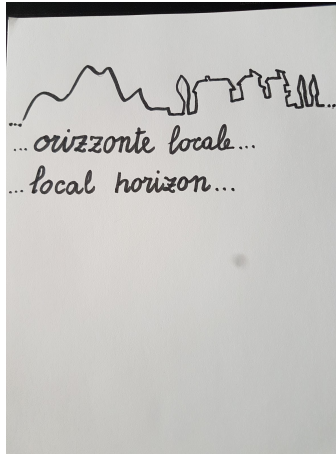 ...orizzonte locale...
...local horizon...